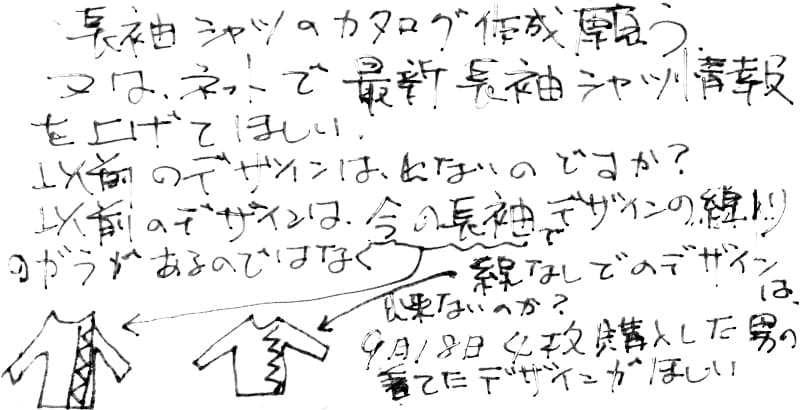 長袖シャツのカタログ作成願う。
又は、ネットで最新長袖シャツ情報
を上げてほしい。
以前のデザインは、出ないのですか?
以前のデザインは、今の長袖デザインの線入り
のがらがあるのではなく
で
線なしでのデザインは、
出来ないのか?
9月18日 4枚購入した男の
着てたデザインがほしい